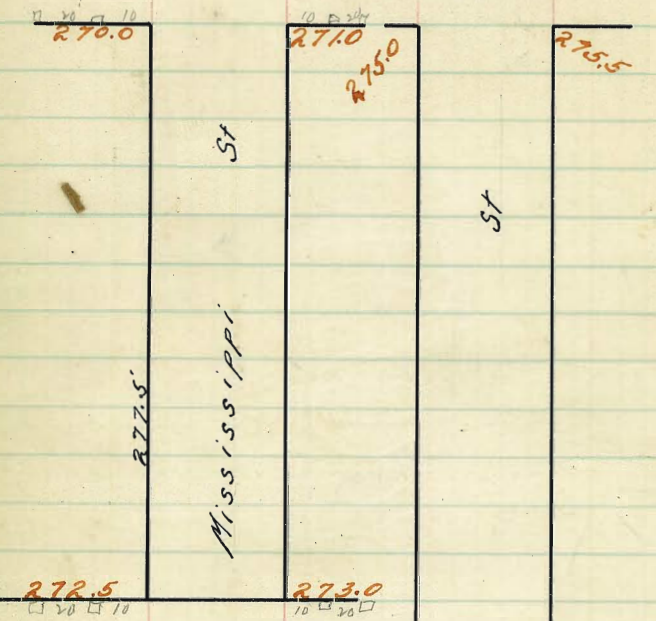 20 10
10 20
270.0
271.0
275.0
275.5
St
St
Mississippi
277.5'
272.5
273.0
20 10
10 20